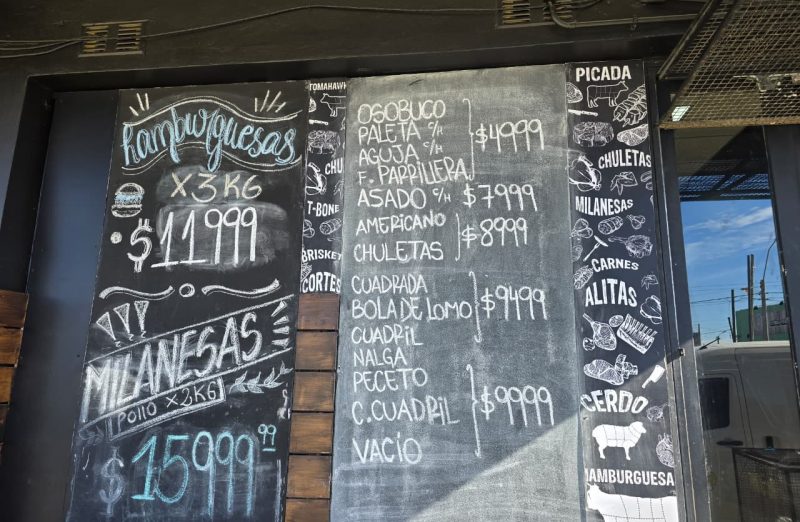 hamburguesas
x3KG
$11999
MILANESAS
POLLO x2KG
$15999⁹⁹
TOMAHAWK
CHU
T-BONE
BRISKET
CORTES
OSOBUCO
PALETA C/H
AGUJA C/H
F. PARRILLERA
$4999
ASADO C/H $7999
AMERICANO
CHULETAS
$8999
CUADRADA
BOLA DE LOMO
CUADRIL
$9499
NALGA
PECETO
C.CUADRIL
VACÍO
$9999
PICADA
CHULETAS
MILANESAS
CARNES
ALITAS
CERDO
HAMBURGUESA